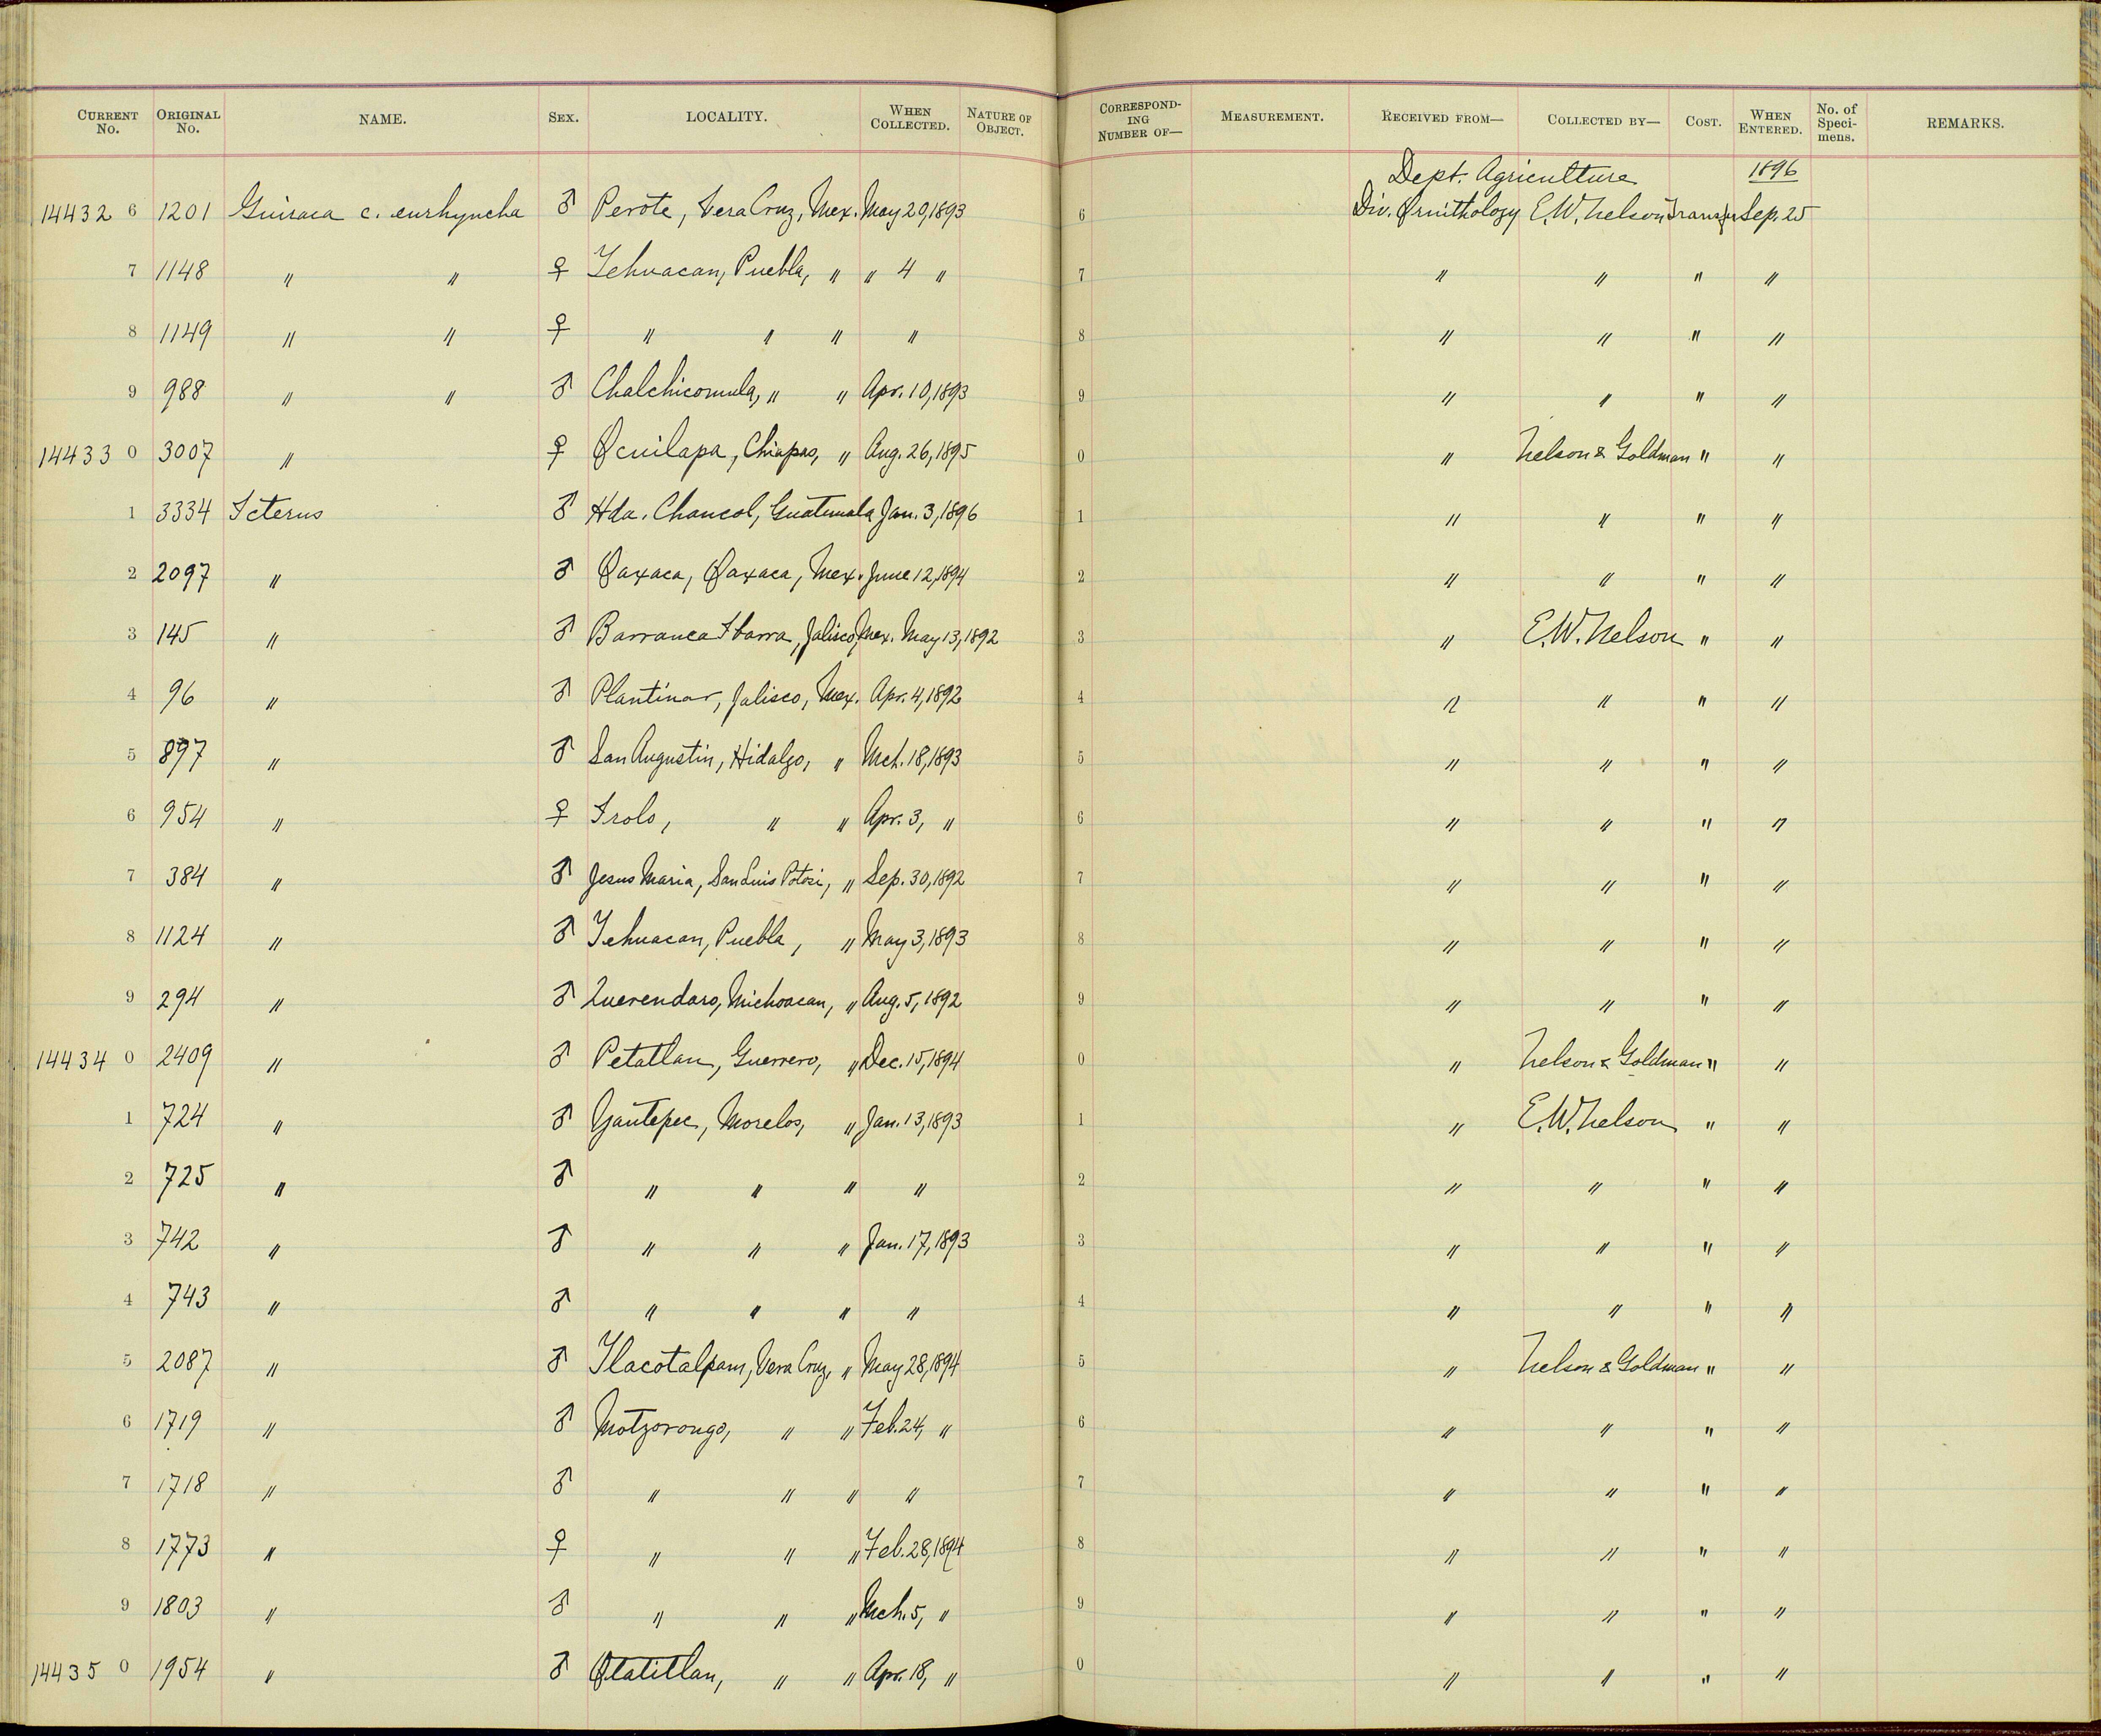 CURRENT No. ORIGINAL No. NAME. SEX. LOCALITY. WHEN COLLECTED. NATURE OF OBJECT. CORRESPONDING NUMBER OF— MEASUREMENT. RECEIVED FROM— COLLECTED BY— COST. WHEN ENTERED. No. of Specimens. REMARKS.
Dept. Agriculture 1896
14432 6 1201 Guiraca c. eurhyncha ♂ Perote, Vera Cruz, Mex. May 20, 1893 6 Div. Ornithology E.W. Nelson Transfer Sep. 25
7 1148 " " ♀ Tehuacan, Puebla, " " 4 " 7 " " " "
8 1149 " " ♀ " " " " 8 " " " "
9 988 " " ♂ Chalchicomula, " " Apr. 10, 1893 9 " " " "
14433 0 3007 " ♀ Ocuilapa, Chiapas, " Aug. 26, 1895 0 " Nelson & Goldman " "
1 3334 Icterus ♂ Hda. Chancol, Guatemala Jan. 3, 1896 1 " " " "
2 2097 " ♂ Oaxaca, Oaxaca, Mex. June 12, 1894 2 " " " "
3 145 " ♂ Barranca Ibarra, Jalisco, Mex. May 13, 1892 3 " E.W. Nelson " "
4 96 " ♂ Plantinar, Jalisco, Mex. Apr. 4, 1892 4 " " " "
5 897 " ♂ San Augustin, Hidalgo, " Mch. 18, 1893 5 " " " "
6 954 " ♀ Irolo, " " Apr. 3, " 6 " " " "
7 384 " ♂ Jesus Maria, San Luis Potosi, " Sep. 30, 1892 7 " " " "
8 1124 " ♂ Tehuacan, Puebla, " May 3, 1893 8 " " " "
9 294 " ♂ Querendaro, Michoacan, " Aug. 5, 1892 9 " " " "
14434 0 2409 " ♂ Petatlan, Guerrero, " Dec. 15, 1894 0 " Nelson & Goldman " "
1 724 " ♂ Yautepec, Morelos, " Jan. 13, 1893 1 " E.W. Nelson " "
2 725 " ♂ " " " " 2 " " " "
3 742 " ♂ " " " Jan. 17, 1893 3 " " " "
4 743 " ♂ " " " " 4 " " " "
5 2087 " ♂ Tlacotalpam, Vera Cruz, " May 28, 1894 5 " Nelson & Goldman " "
6 1719 " ♂ Motzorongo, " " Feb. 24, " 6 " " " "
7 1718 " ♂ " " " " 7 " " " "
8 1773 " ♀ " " " Feb. 28, 1894 8 " " " "
9 1803 " ♂ " " " Mch. 5, " 9 " " " "
14435 0 1954 " ♂ Otatitlan, " " Apr. 18, " 0 " " " "